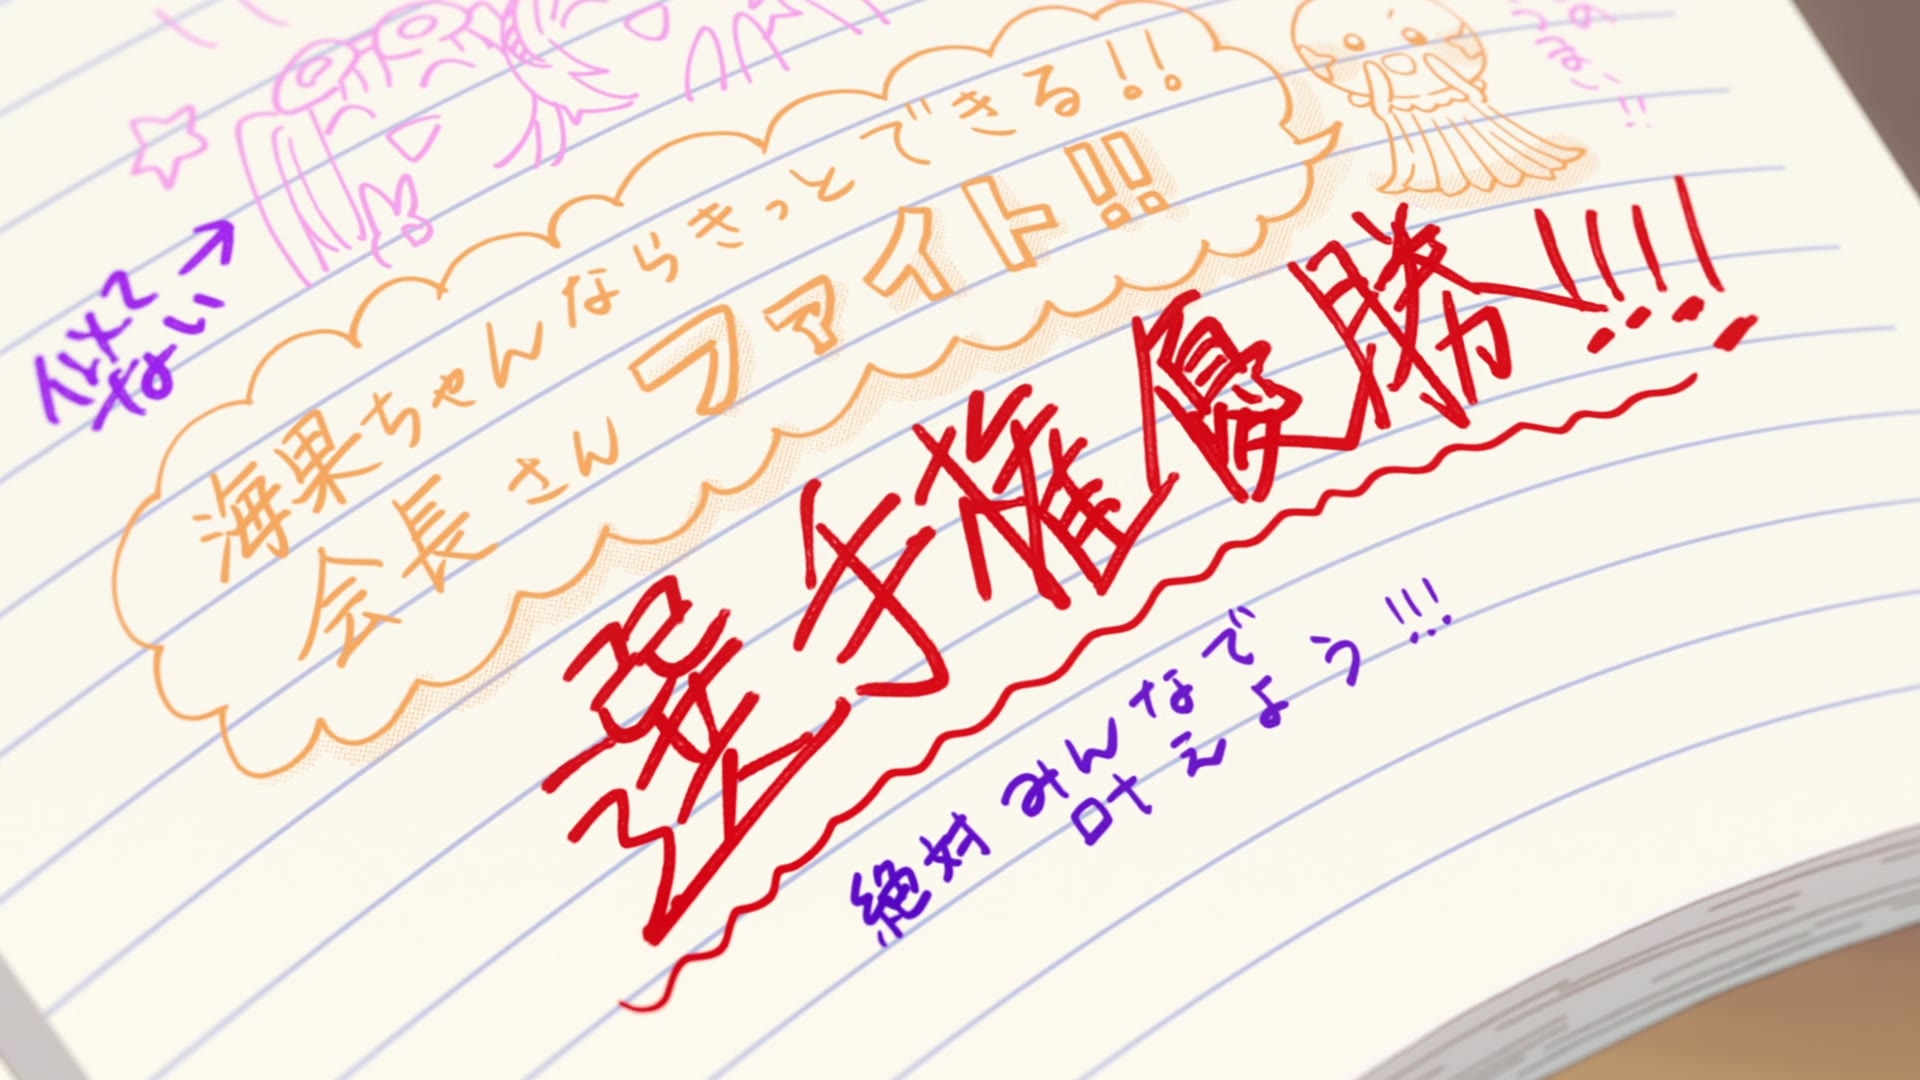 似てない→
海果ちゃんならきっとできる!!
会長さんファイト!!
選手権優勝!!!!
絶対みんなで
叶えよう!!!